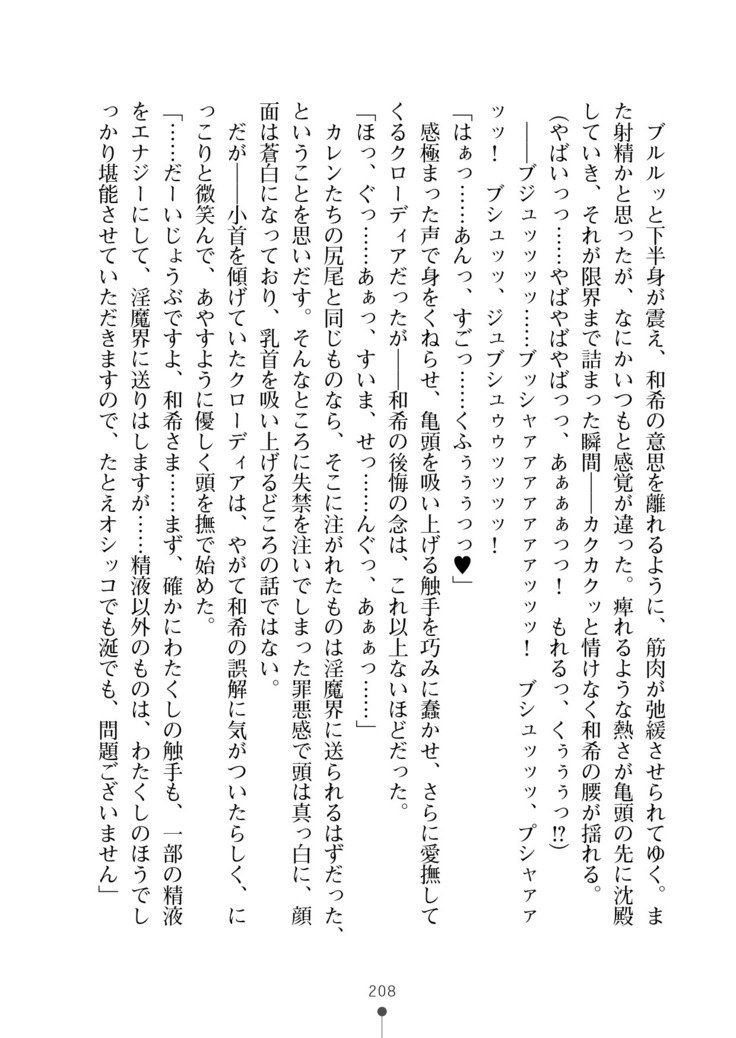 ブルルッと下半身が震え、和希の意思を離れるように、筋肉が弛緩させられてゆく。ま
た射精かと思ったが、なにかいつもと感覚が違った。痺れるような熱さが亀頭の先に沈殿
していき、それが限界まで詰まった瞬間――カクカクッと情けなく和希の腰が揺れる。
(やばいっっ……やばやばやばっっ、あぁぁぁっっ! もれるっ、くぅぅぅっ!?)
――ブジュッッッッ……ブッシャァァァァァァァァッッッ! ブシュッッッ、プシャァァ
ッッ! ブシュッッ、ジュブシュゥゥッッッッ!
「はぁっ……あんっ、すごっ……くふぅぅぅっっ♥」
感極まった声で身をくねらせ、亀頭を吸い上げる触手を巧みに蠢かせ、さらに愛撫して
くるクローディアだったが――和希の後悔の念は、これ以上ないほどだった。
「ほっ、ぐっ……あぁっ、すいま、せっ……んぐっ、あぁぁっ……」
カレンたちの尻尾と同じものなら、そこに注がれたものは淫魔界に送られるはずだった、
ということを思いだす。そんなところに失禁を注いでしまった罪悪感で頭は真っ白に、顔
面は蒼白になっており、乳首を吸い上げるどころの話ではない。
だが――小首を傾げていたクローディアは、やがて和希の誤解に気がついたらしく、に
っこりと微笑んで、あやすように優しく頭を撫で始めた。
「……だーいじょうぶですよ、和希さま……まず、確かにわたくしの触手も、一部の精液
をエナジーにして、淫魔界に送りはしますが……精液以外のものは、わたくしのほうでし
っかり堪能させていただきますので、たとえオシッコでも涎でも、問題ございません」
208